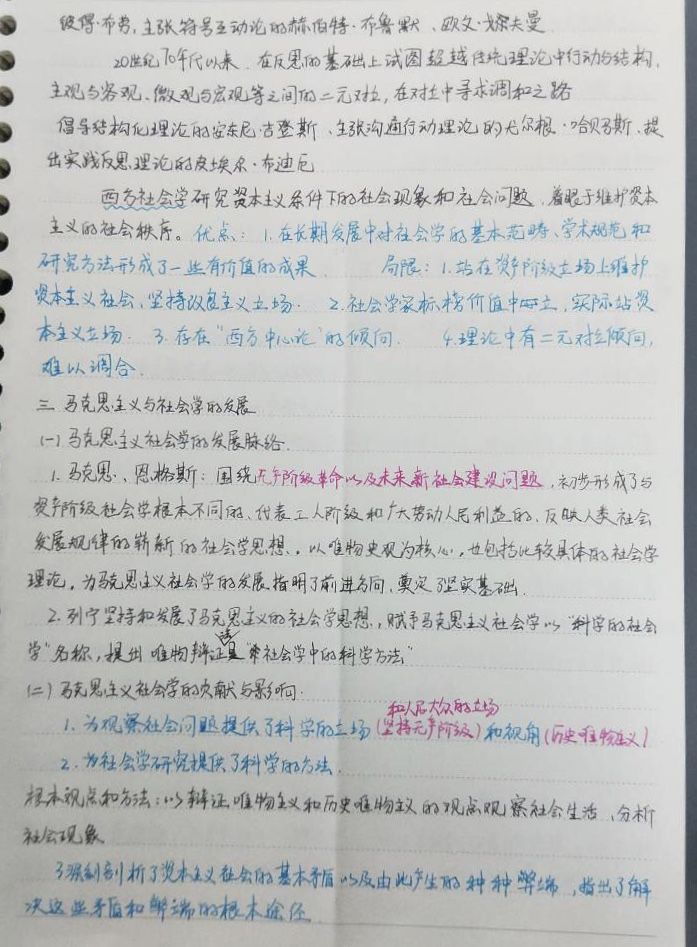 彼得·布劳,主张符号互动论的赫伯特·布鲁默、欧文·戈夫曼
20世纪70年代以来,在反思的基础上试图超越传统理论中行动与结构、
主观与客观、微观与宏观等之间的二元对立,在对立中寻求调和之路
倡导结构化理论的安东尼·吉登斯、主张沟通行动理论的尤尔根·哈贝马斯、提
出实践反思理论的皮埃尔·布迪厄
西方社会学研究资本主义条件下的社会现象和社会问题,着眼于维护资本
主义的社会秩序。优点:1.在长期发展中对社会学的基本范畴、学术规范和
研究方法形成了一些有价值的成果 局限:1.站在资产阶级立场上维护
资本主义社会、坚持改良主义立场. 2.社会学家标榜价值中立,实际站资
本主义立场. 3.存在"西方中心论"的倾向. 4.理论中有二元对立倾向,
难以调合.
三 马克思主义与社会学的发展
(一)马克思主义社会学的发展脉络.
1.马克思、恩格斯:围绕无产阶级革命以及未来新社会建设问题,初步形成了与
资产阶级社会学根本不同的、代表工人阶级和广大劳动人民利益的、反映人类社会
发展规律的崭新的社会学思想,以唯物史观为核心,也包括比较具体的社会学
理论,为马克思主义社会学的发展指明了前进方向,奠定了坚实基础.
2.列宁坚持和发展了马克思主义的社会学思想,赋予马克思主义社会学以"科学的社会
学"名称,提出唯物辩证法是"社会学中的科学方法"
(二)马克思主义社会学的贡献与影响.
和人民大众的立场
1.为观察社会问题提供了科学的立场(坚持无产阶级)和视角(历史唯物主义)
2.为社会学研究提供了科学的方法.
根本观点和方法:以辩证唯物主义和历史唯物主义的观点观察社会生活、分析
社会现象
3.深刻剖析了资本主义社会的基本矛盾以及由此产生的种种弊端,指出了解
决这些矛盾和弊端的根本途径.